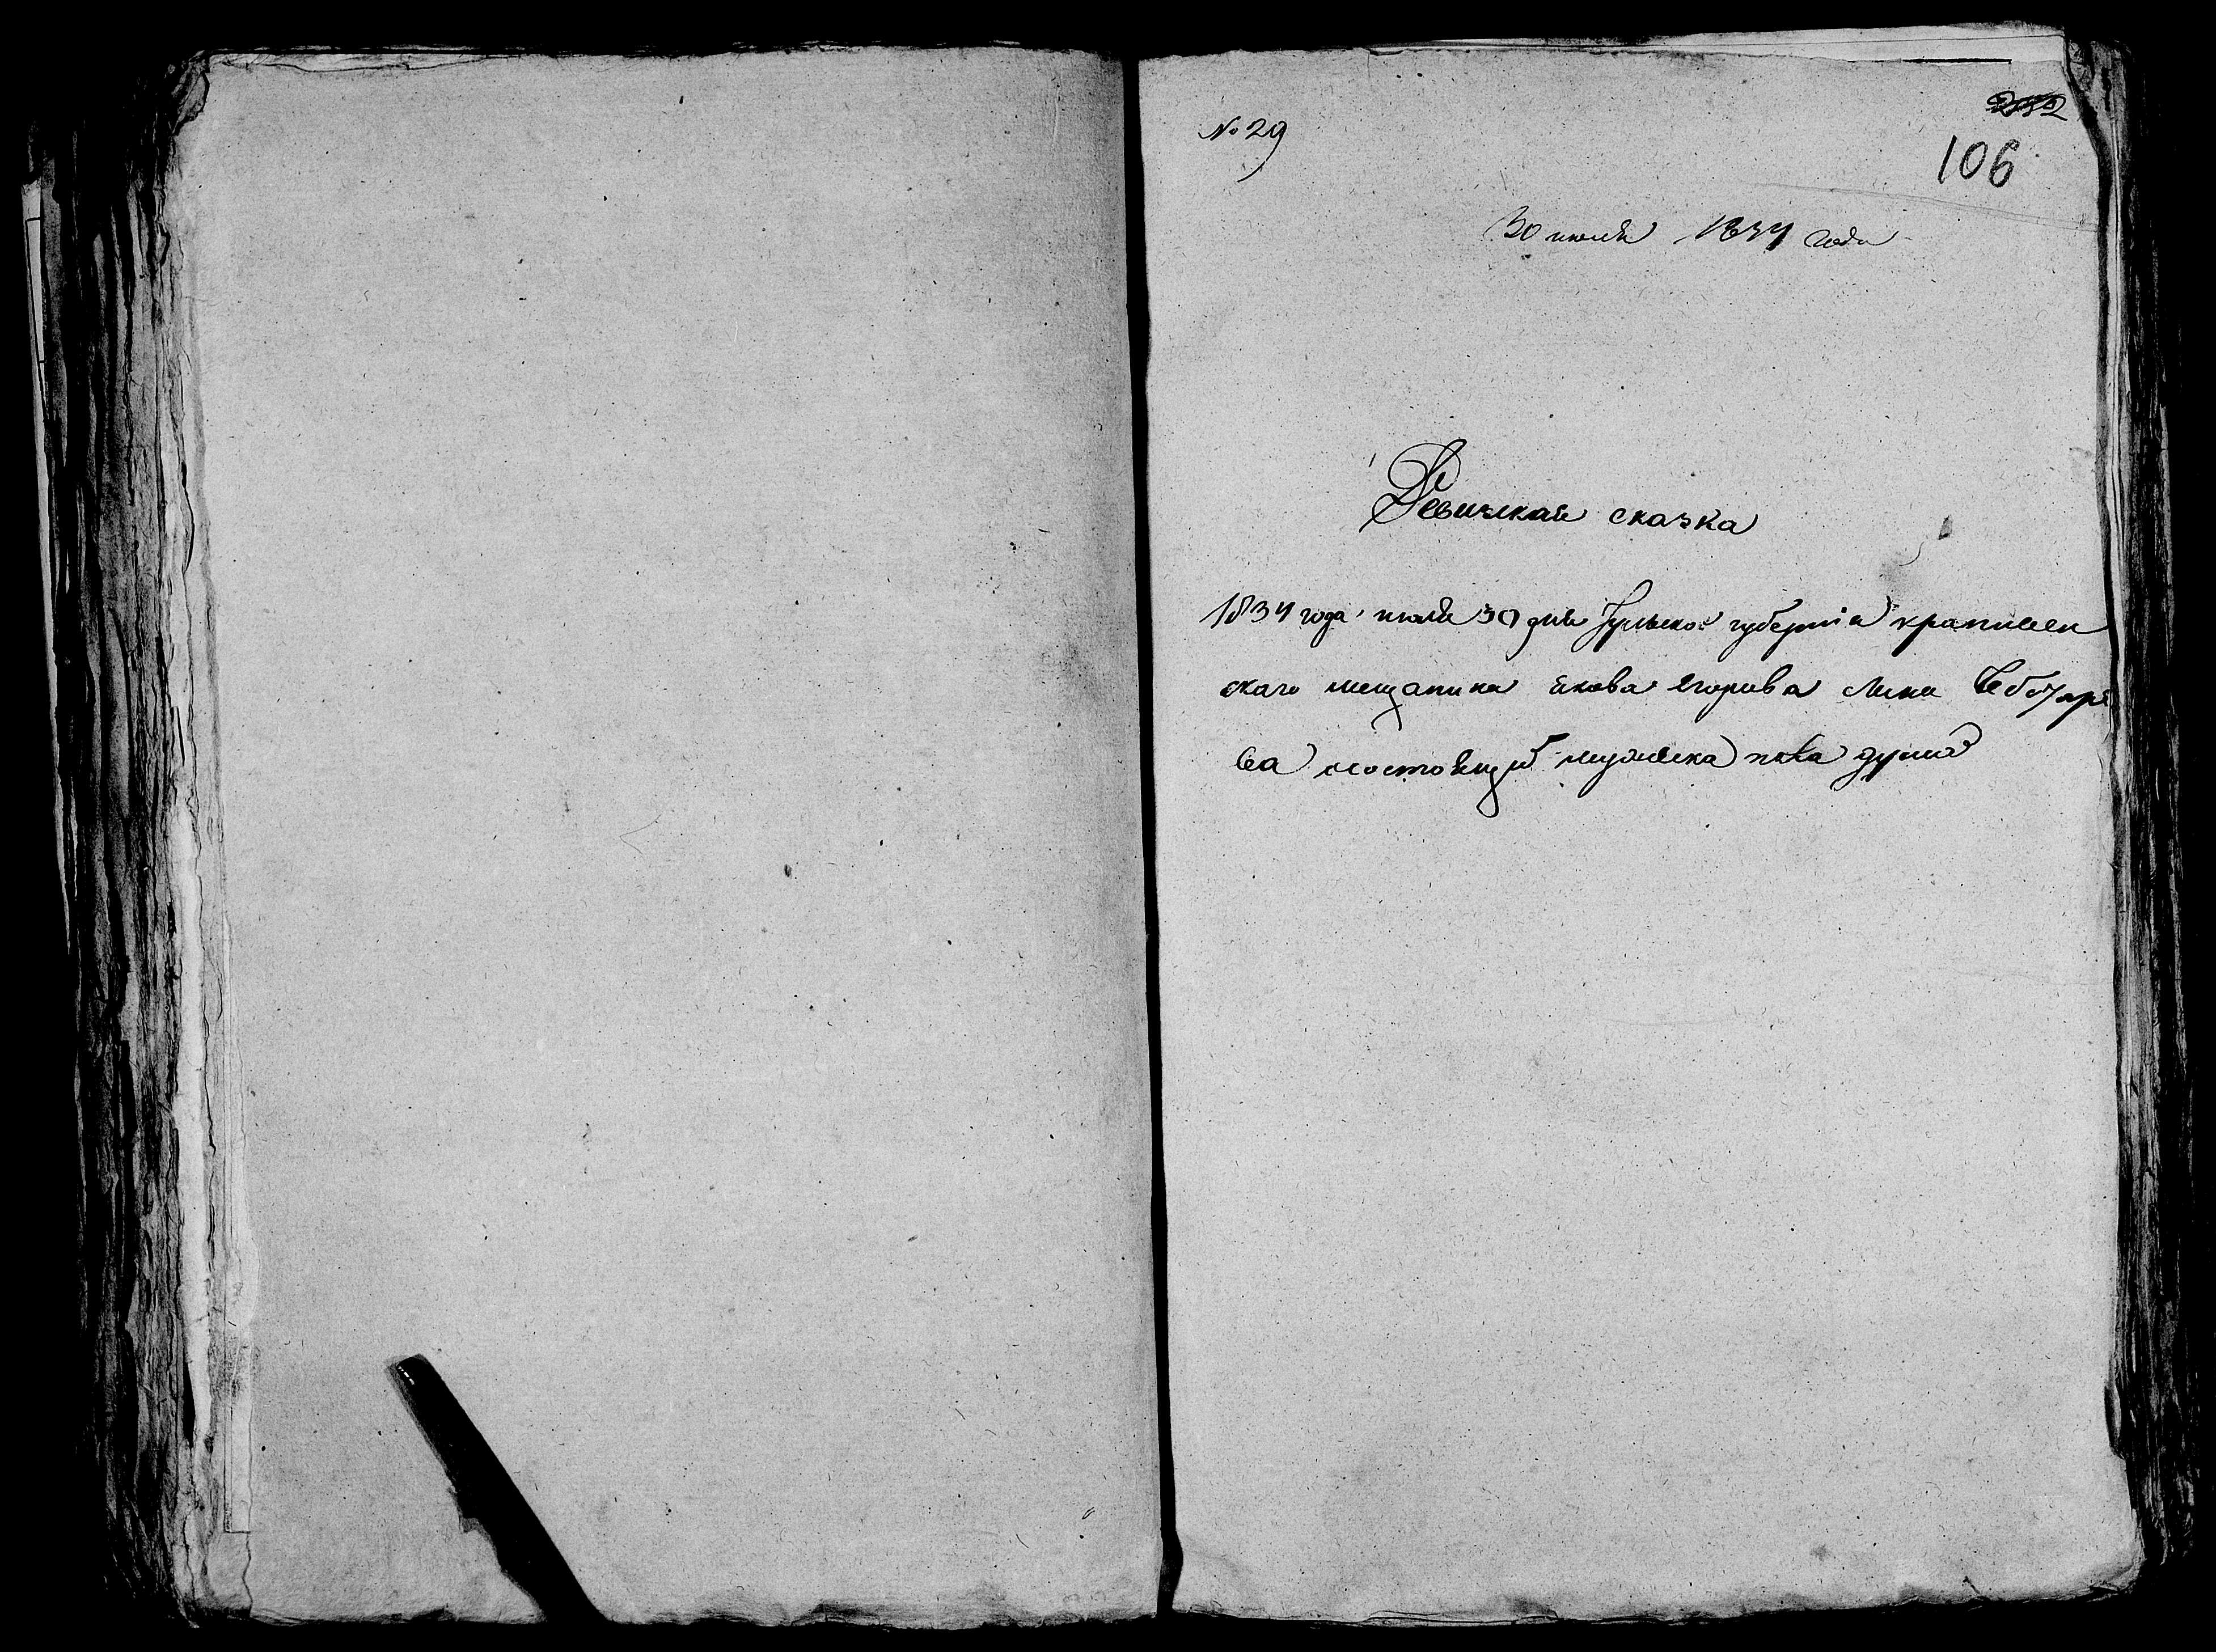 № 29
106
30 июля 1834 года
Ревизская сказка
1834 года июля 30 дня Тульской губернiи крапивен
скаго мещанина Якова Егорова сына Чеботаре
ва состоящий мужеска пола души